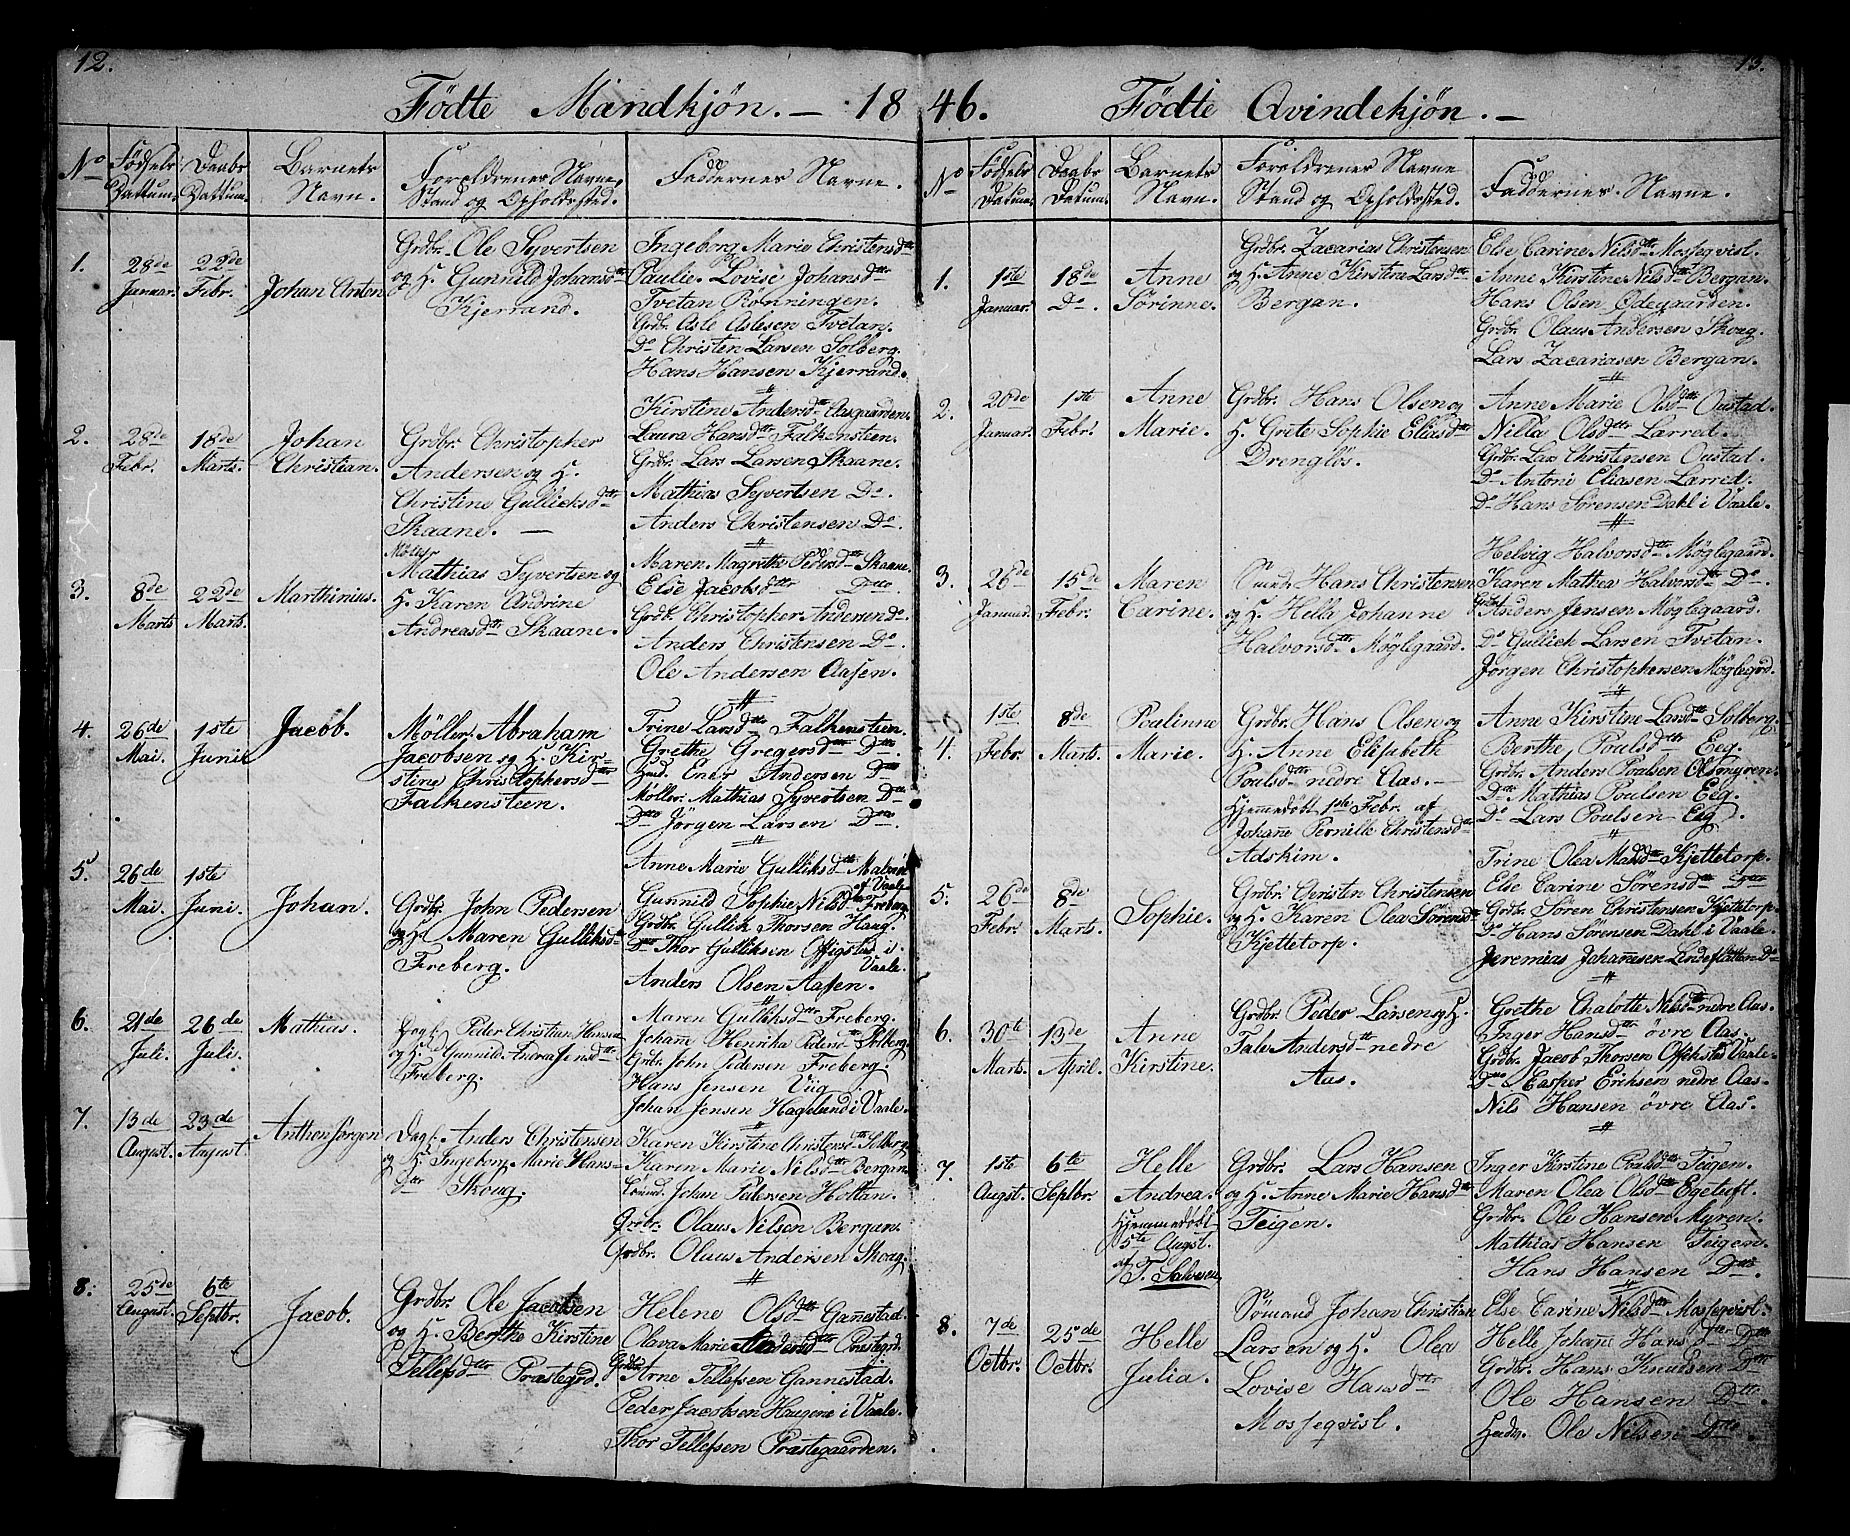 12.
Födte Mandkjön. — 18
No
Födsels Dattum.
Daabs Dattum.
Barnets Navn.
Foreldrenes Navne, Stand og Opholdssted.
Faddernes Navne.
1.
28de Januar.
22de Febr.
Johan Anton
Grdbr. Ole Syvertsen
og H. Gunnild Johansdtr
Kjerrand.
Ingeborg Marie Christensdtr
Paulie Lovise Johansdtr
Tvetan Rönningen.
Grdbr. Asle Aslesen Tvetan.
Do Christen Larsen Solberg.
Hans Hansen Kjerrand.
2.
28de Febr.
18de Marts.
Johan
Christian.
Grdbr. Christopher
Andersen og H.
Christine Gullicksdtr
Skaane. —
Kirstine Andersdtr Aasgaarden.
Laura Hansdtr Falkensteen.
Grdbr. Lars Larsen Skaane.
Mathias Syvertsen Do.
Anders Christensen Do.
3.
8de Marts
22de Marts.
Marthinius.
Möller
Mathias Syvertsen og
H. Karen Andrine
Andreasdtr Skaane.
Maren Magrethe Pedersdtr Skaane.
Else Jacobsdtr Ditto
Grdbr. Christopher Andersen do.
Anders Christensen Do.
Ole Andersen Aasen.
4.
26de Mai.
1ste Junii
Jacob.
Möller. Abraham
Jacobsen og H. Kir-
stine Christophersdtr
Falkensteen.
Trine Larsdtr Falkensteen.
Grethe Gregersdtr Dtto.
Husd. Ener Andersen Dtto
Möller. Mathias Syvertsen Dtto
Ditto Jörgen Larsen Dtto.
5.
26de Mai.
1ste Juni.
Johan.
Grdbr. John Pedersen
og H. Maren Gulliksdtr
Freberg.
Anne Marie Gulliksdtr
af Vaale
Gunnild Sophie Nilsdtr Freberg
Grdbr. Gullik Thorsen Haug.
Dtto Thor Gulliksen i
Vaale.
Anders Olsen Aasen.
6.
21de Juli.
26de Juli.
Mathias.
Peder Christian Hansen
og H. Gunnild Andrea Jensdtr
Freberg.
Maren Gulliksdtr Freberg.
Johanne Henrika Pedersdtr Solberg.
Grdbr. John Pedersen Freberg.
Hans Jensen Viig.
Johan Jensen Hagelund i Vaale.
7.
13de August.
23de August.
Anthon Jörgen
Anders Christensen
og H. Ingeborg Marie Hans-
dtr Skoug.
Karen Kirstine Christensdtr Solberg
Karen Marie Nilsdtr Bergan
Johan Pedersen Holtan.
Grdbr. Olaus Nilsen Bergan.
Grdbr. Olaus Andersen Skoug.
8.
25de August.
6te Septbr.
Jacob.
Grdbr. Ole Jacobsen
og H. Berthe Kirstine
Tellefsdtr Præstegrd.
Helene Olsdtr Gannestad.
Olava Marie Andersdtr Præstegrd.
Grdbr. Arne Tellefsen Gannestad.
Peder Jacobsen Haugene i Vaale.
Thor Tellefsen Præstegaarden.
13.
46. Födte Qvindekjön. —
No
Födsels Datum.
Daabs Datum.
Barnets Navn.
Foreldrenes Navne Stand og Opholdssted.
Faddernes Navne.
1.
1ste Januar.
18de Do.
Anne
Sörinne.
Grdbr. Zacarias Christensen
og H. Anne Kirstine Larsdtr
Bergan.
Else Carine Nilsdtr Mosseqvist.
Anne Kirstine Nilsdtr Bergan.
Hans Olsen Ödegaarden.
Grdbr. Olaus Andersen Skoug.
Lars Zacariasen Bergan.
2.
20de Januar.
1ste Febr.
Anne
Marie.
Grdbr. Hans Olsen og
H. Grete Sophie Eliasdtr
Drenglös.
Anne Marie Olsdtr Oustad.
Nilla Olsdtr Larred.
Grdbr. Lars Christensen Oustad.
Do Antoni Eliasen Larred.
Do Hans Sörensen Dahl i Vaale.
3.
26de Januar.
15de Febr.
Maren
Carine.
Hans Christensen
og H. Hella Johanne
Halvorsdtr Möglegaard.
Helvig Halvorsdtr Möglegaard.
Karen Mathea Halvorsdtr Do.
Grdbr. Anders Jensen Möglegaard.
Do Gullich Larsen Tvetan.
Jörgen Christophersen Möglegrd.
4.
1ste Febr.
8de Marts.
Poulinne
Marie.
Grdbr. Hans Olsen og
H. Anne Elisabeth
Poulsdtr nedre Aas. —
Hjemmedöbt 1ste Febr. af
Johanne Pernille Christensdtr
Adskim.
Anne Kirstine Larsdtr Solberg.
Berthe Poulsdtr Eeg.
Grdbr. Anders Poulsen
Do Mathias Poulsen Eeg.
Do Lars Poulsen Eeg.
5.
26de Febr.
8de Marts.
Sophie.
Grdbr. Christen Christensen
og H. Karen Olea Sörensdtr
Kjettetorp.
Trine Olea Madsdtr Kjettetorp.
Else Carine Sörensdtr Dtto
Grdbr. Sören Christensen Kjettetorp.
Do Hans Sörensen Dahl i Vaale.
Jeremias Johannesen Do
6.
30te Marts.
13de April.
Anne
Kirstine.
Grdbr. Peder Larsen og H.
Tale Andersdtr nedre
Aas.
Grethe Chalotte Nilsdtr nedre Aas.
Inger Hansdtr övre Aas.
Grdbr. Jacob Thorsen Vaale.
Dtto Casper Eriksen nedre Aas.
Nils Hansen övre Aas.
7.
1ste Augst.
6te Septbr.
Helle
Andrea.
Hjemmedöbt
5te Augst.
af
T. Salvesen
Grdbr. Lars Hansen
og H. Anne Marie Hansdtr
Teigen.
Inger Kirstine Poulsdtr Teigen.
Maren Olea Olsdtr Egetuft.
Grdbr. Ole Hansen Myren.
Mathias Hansen Teigen.
Hans Hansen Dtto.
8.
7de Octbr.
25de Octbr.
Helle
Julia.
Sömand Johan Christian
Larsen og H. Olea
Lovise Hansdtr
Mosseqvist.
Else Carine Nilsdtr Mosseqvist.
Helle Johanne Hansdtr Dtto
Grdbr. Hans Knudsen Dtto
Ole Hansen Dtto.
Ole Nilsen Ditto.